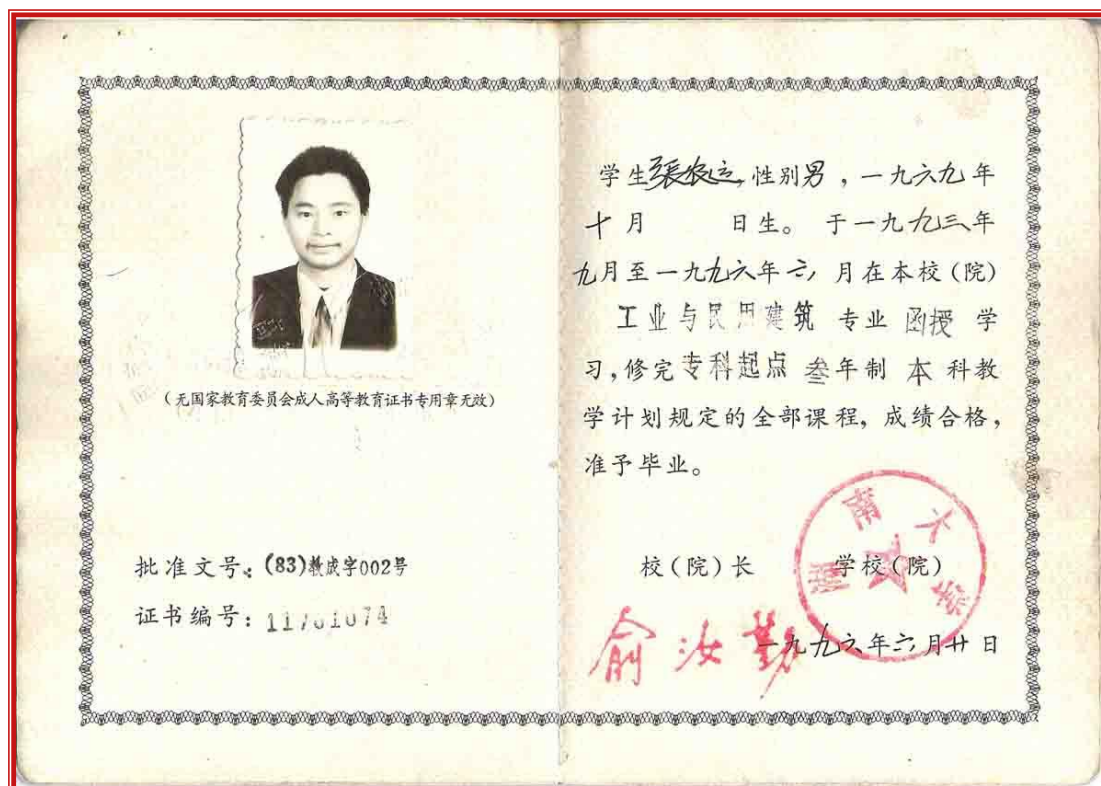 (无国家教育委员会成人高等教育证书专用章无效)
批准文号:(83)教成字002号
证书编号:11761074
学生張农运,性别男,一九六九年
十月 日生。于一九九三年
九月至一九九六年六月在本校(院)
工业与民用建筑 专业 函授 学
习,修完专科起点 叁年制 本 科教
学计划规定的全部课程,成绩合格,
准予毕业。
校(院)长 学校(院)
湖南大学
俞汝勤
一九九六年六月廿日